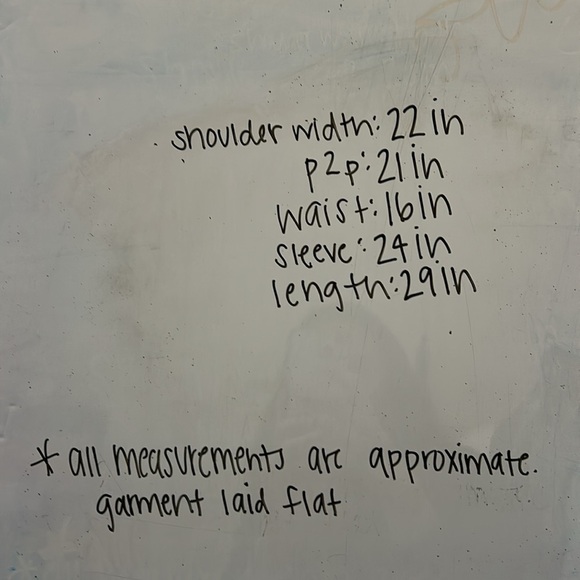 shoulder width: 22 in
p2p: 21 in
waist: 16 in
sleeve: 24 in
length: 29 in
* all measurements are approximate.
garment laid flat